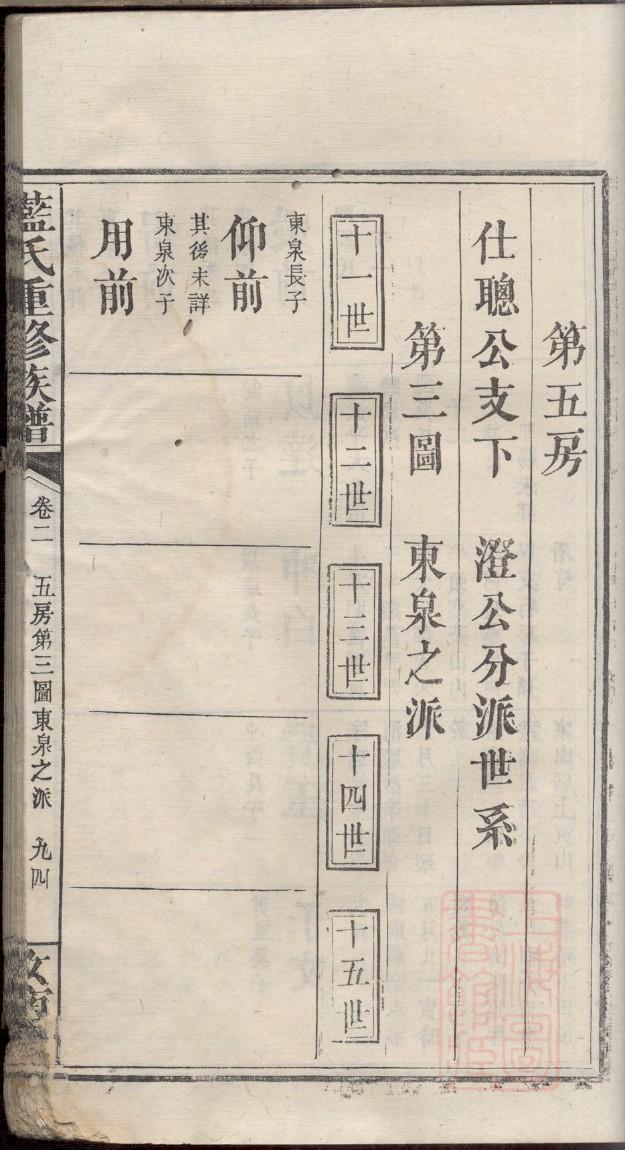 第五房
仕聰公支下　澄公分派世系
第三圖　東泉之派
十一世
十二世
十三世
十四世
十五世
東泉長子
仰前
其後未詳
東泉次子
用前
藍氏重修族譜
卷二　五房第三圖東泉之派　九四